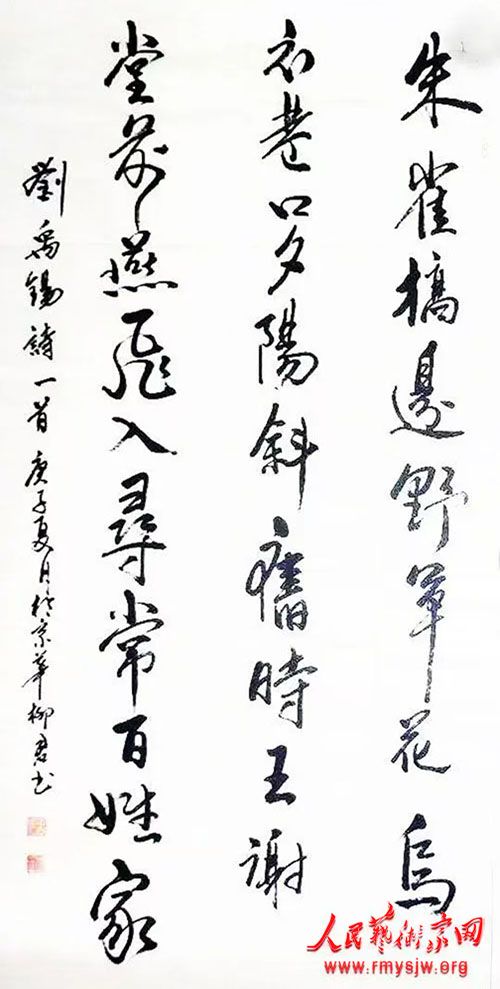 朱雀橋邊野草花烏
衣巷口夕陽斜舊時王謝
堂前燕飛入尋常百姓家
劉禹錫詩一首庚子夏月於京華柳君书
人民藝術家网
www.rmysjw.org